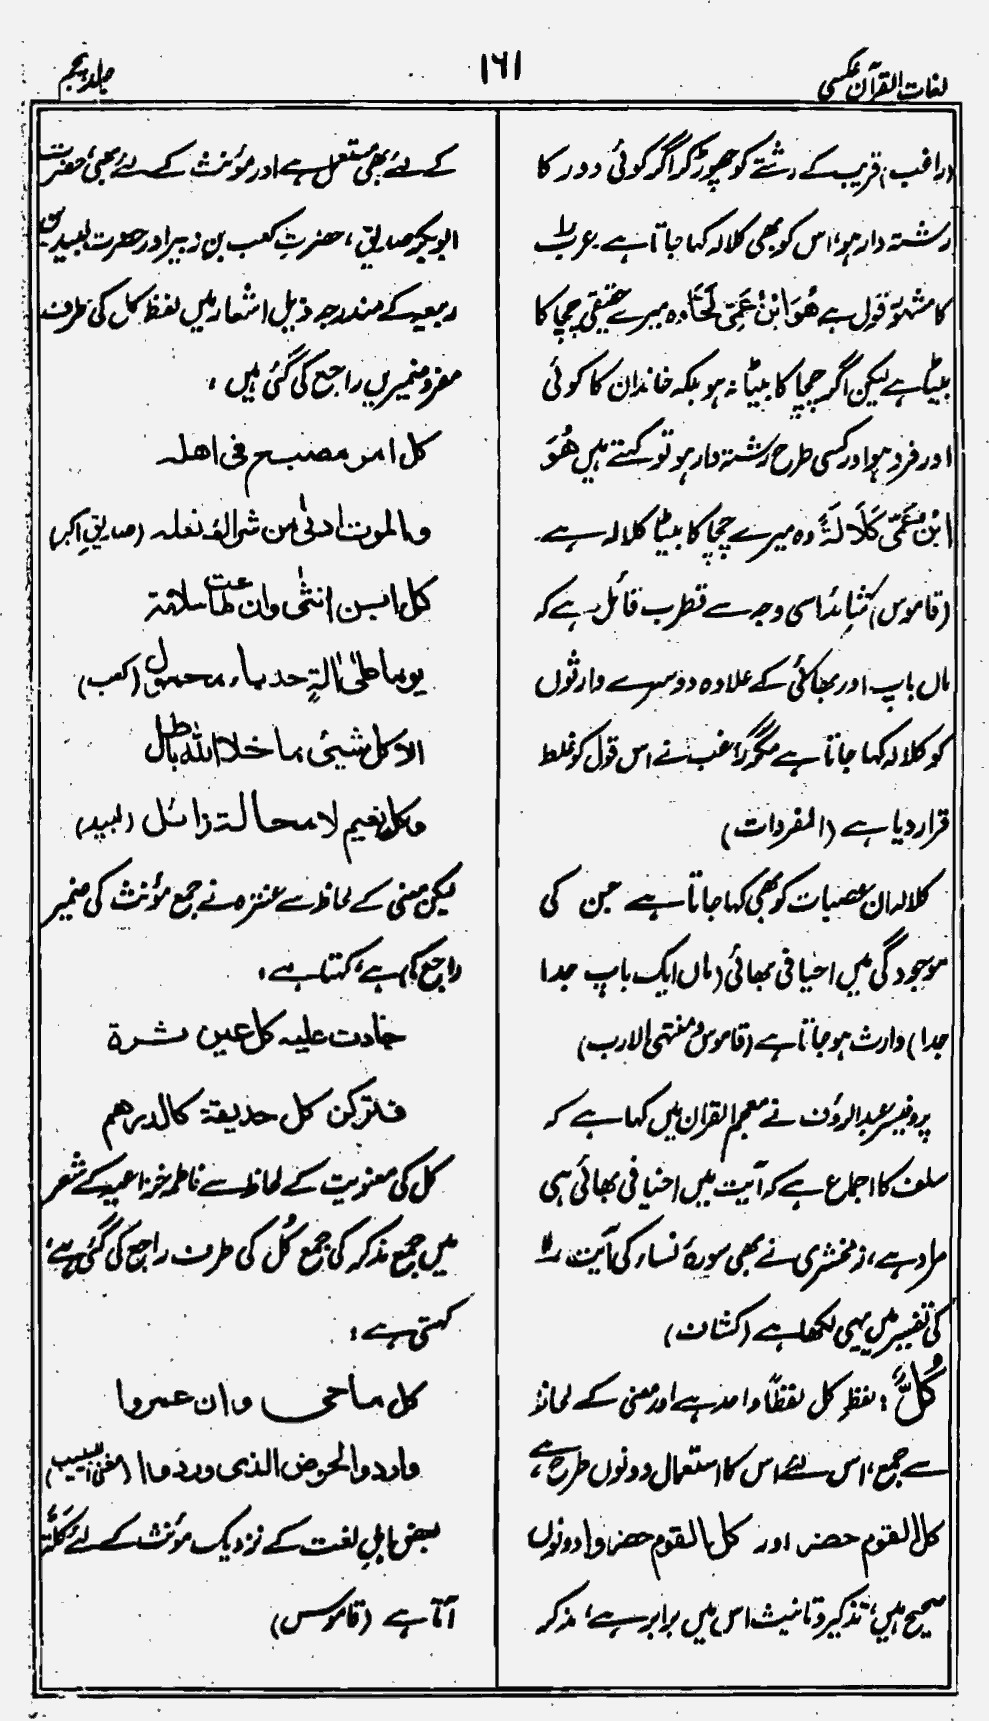 لغات القرآن عکسی
۱۶۱
جلد پنجم
(راغب) قریب کے رشتے کو چھوڑ کر اگر کوئی دور کا
رشتہ دار ہو، اس کو بھی کلالہ کہا جاتا ہے عربوں
کا مشہور قول ہے هُوَ ابْنُ عَمِّی لَحًّا وہ میرے حقیقی چچا کا
بیٹا ہے لیکن اگر چچا کا بیٹا نہ ہو بلکہ خاندان کا کوئی
اور فرد ہو اور کسی طرح رشتہ دار ہو تو کہتے ہیں هُوَ
ابْنُ عَمِّی کَلَالَةً وہ میرے چچا کا بیٹا کلالہ ہے۔
(قاموس) شاید اسی وجہ سے قطرب قائل ہے کہ
ماں باپ اور بھائی کے علاوہ دوسرے وارثوں
کو کلالہ کہا جاتا ہے مگر راغب نے اس قول کو غلط
قرار دیا ہے (المفردات)
کلالہ ان عصبات کو بھی کہا جاتا ہے جن کی
موجودگی میں اخیافی بھائی (ماں ایک باپ جدا
جدا) وارث ہو جاتا ہے (قاموس و منتہی الارب)
پروفیسر عبد الرؤف نے معجم القرآن میں کہا ہے کہ
سلف کا اجماع ہے کہ آیت میں اخیافی بھائی ہی
مراد ہے، زمخشری نے بھی سورۂ نساء کی آیت
کی تفسیر میں یہی لکھا ہے (کشاف)
کُلٌّ : لفظِ کل لفظاً واحد ہے اور معنی کے لحاظ
سے جمع، اس لئے اس کا استعمال دونوں طرح ہے،
کل القوم حضر اور کل القوم حضروا دونوں
صحیح ہیں، تذکیر و تانیث اس میں برابر ہے، مذکر
کے لئے بھی مستعمل ہے اور مؤنث کے لئے بھی، حضرت
ابوبکر صدیق، حضرت کعب بن زہیر اور حضرت لبید بن
ربیعہ کے مندرجہ ذیل اشعار میں لفظ کل کی طرف
مفرد ضمیریں راجع کی گئی ہیں :
کل امرء مصبح فی اهله
والموت ادنیٰ من شراک نعله (صدیقِ اکبر)
کل ابن انثیٰ وان طالت سلامته
یوما علیٰ اٰلة حدباء محمول (کعب)
الا کل شیئ ما خلا الله باطل
وکل نعیم لا محالة زائل (لبید)
لیکن معنی کے لحاظ سے عنترہ نے جمع مؤنث کی ضمیر
راجع کی ہے، کہتا ہے :
جادت علیه کل عین ثرة
فترکن کل حدیقة کالدرهم
کل کی معنویت کے لحاظ سے فاطمہ خزاعیہ کے شعر
میں جمع مذکر کی جمع کُل کی طرف راجع کی گئی ہے،
کہتی ہے :
کل ما حی وان عمروا
واردوا الحوض الذی وردوا (مغنی اللبیب)
بعض اہلِ لغت کے نزدیک مؤنث کے لئے کُلَّةٌ
آتا ہے (قاموس)